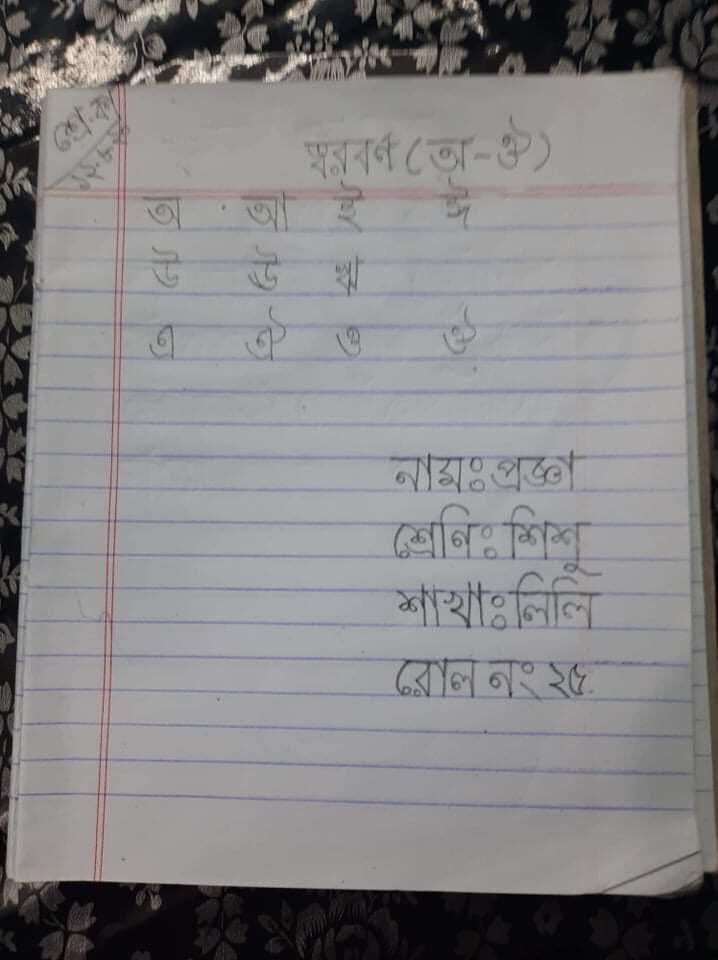 শ্রে. কা
স্বরবর্ণ (অ-ঔ)
অ আ ই ঈ
উ ঊ ঋ
এ ঐ ও ঔ
নামঃ প্রজ্ঞা
শ্রেনিঃ শিশু
শাখাঃ লিলি
রোল নং ২৫